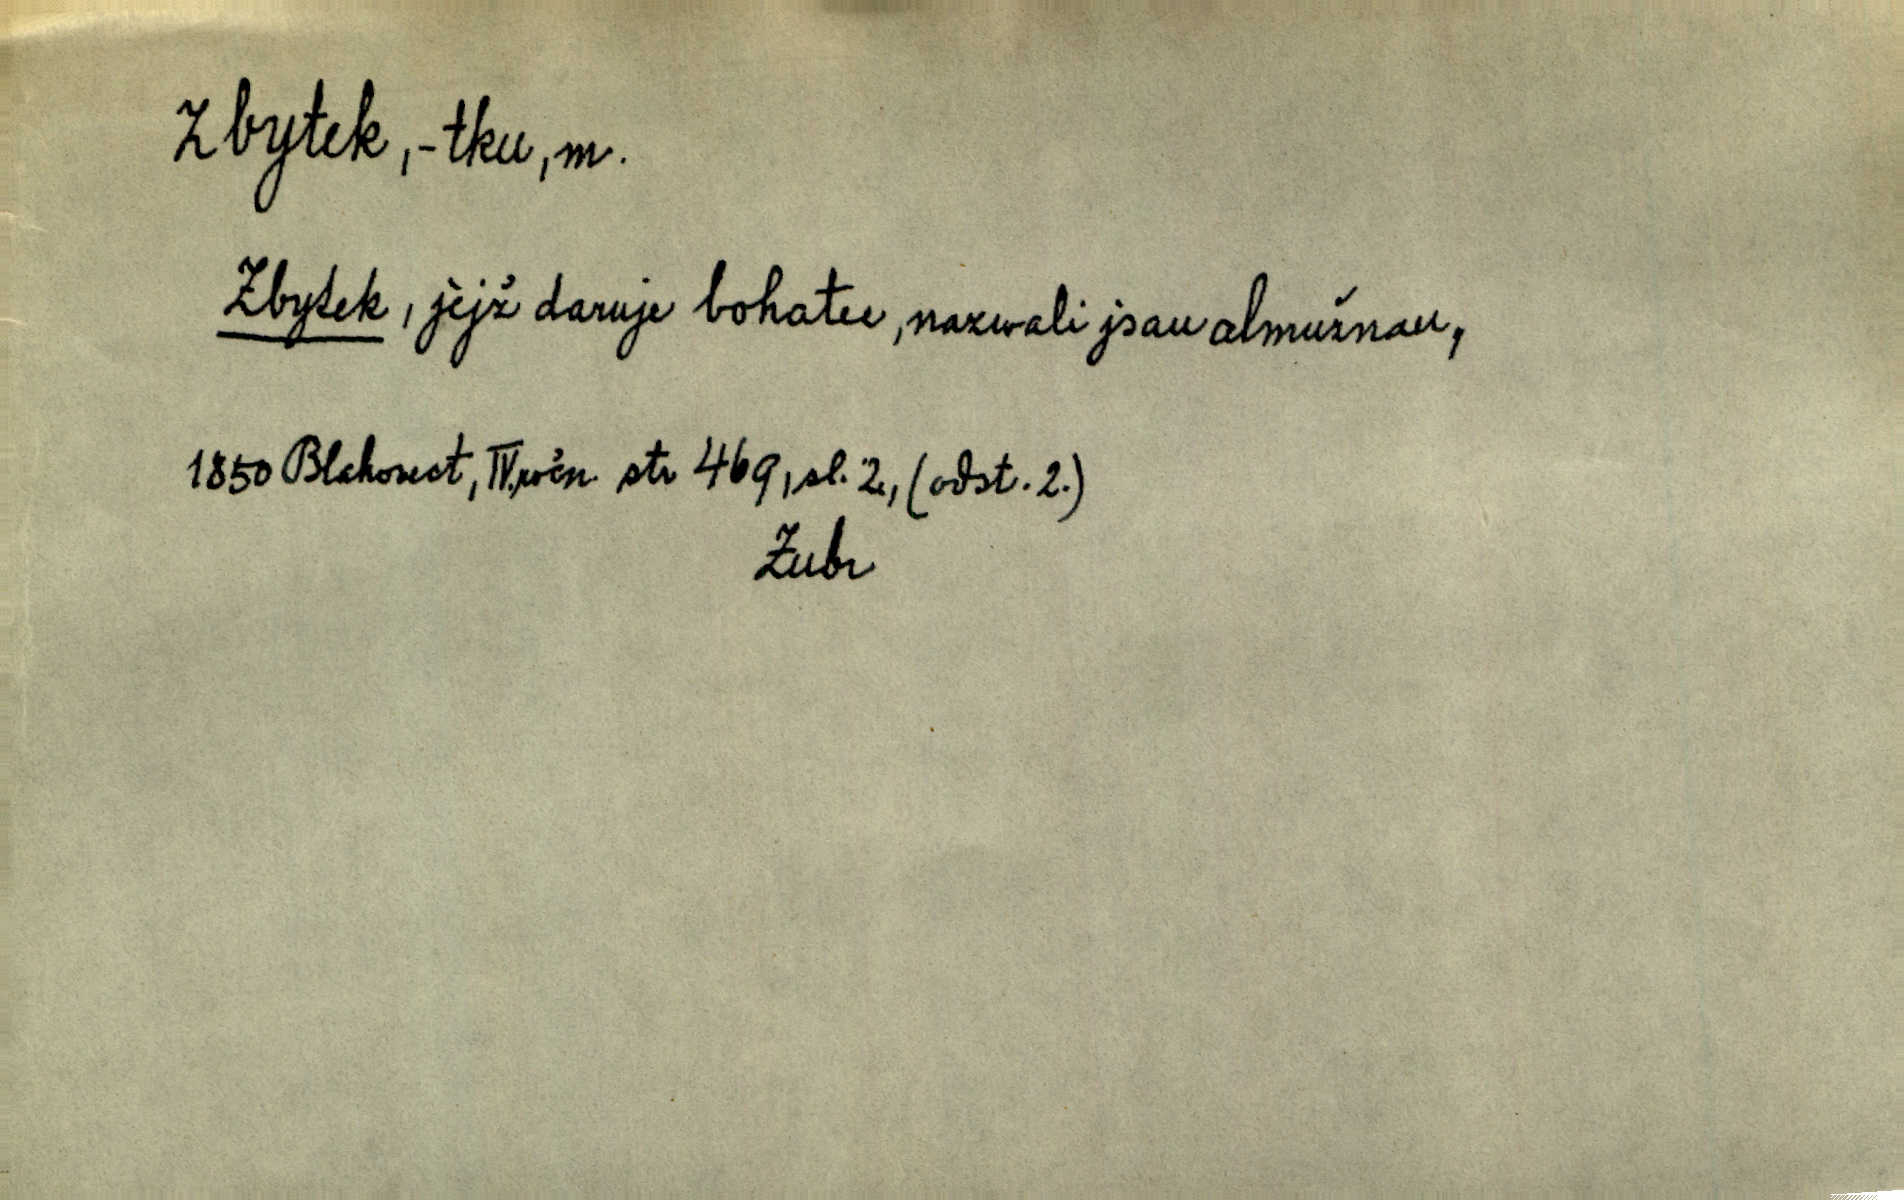 Zbytek, -tku, m.
Zbytek, jejž daruje bohatec, nazwali jsau almužnau,
1850 Blahovest, IV.ročn. str 469, sl. 2., (odst. 2.)
Zubr